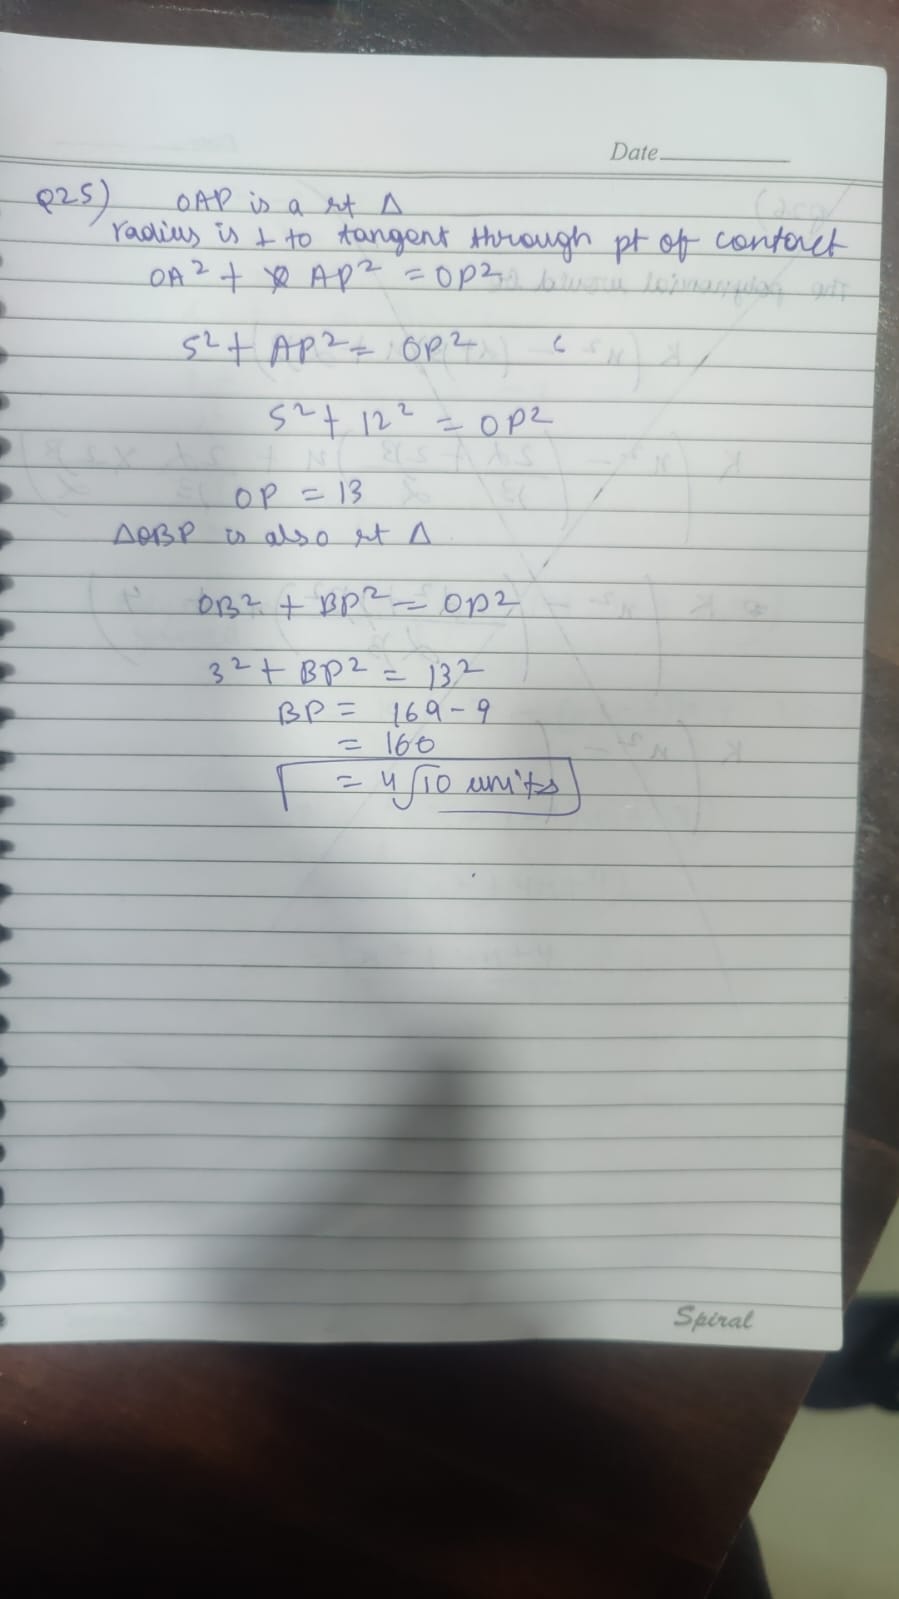 Date
Q25) OAP is a rt Δ
radius is ⊥ to tangent through pt of contact
OA² + AP² = OP²
5² + AP² = OP²
5² + 12² = OP²
OP = 13
ΔOBP is also rt Δ
OB² + BP² = OP²
3² + BP² = 13²
BP = 169 - 9
= 160
= 4√10 units
Spiral